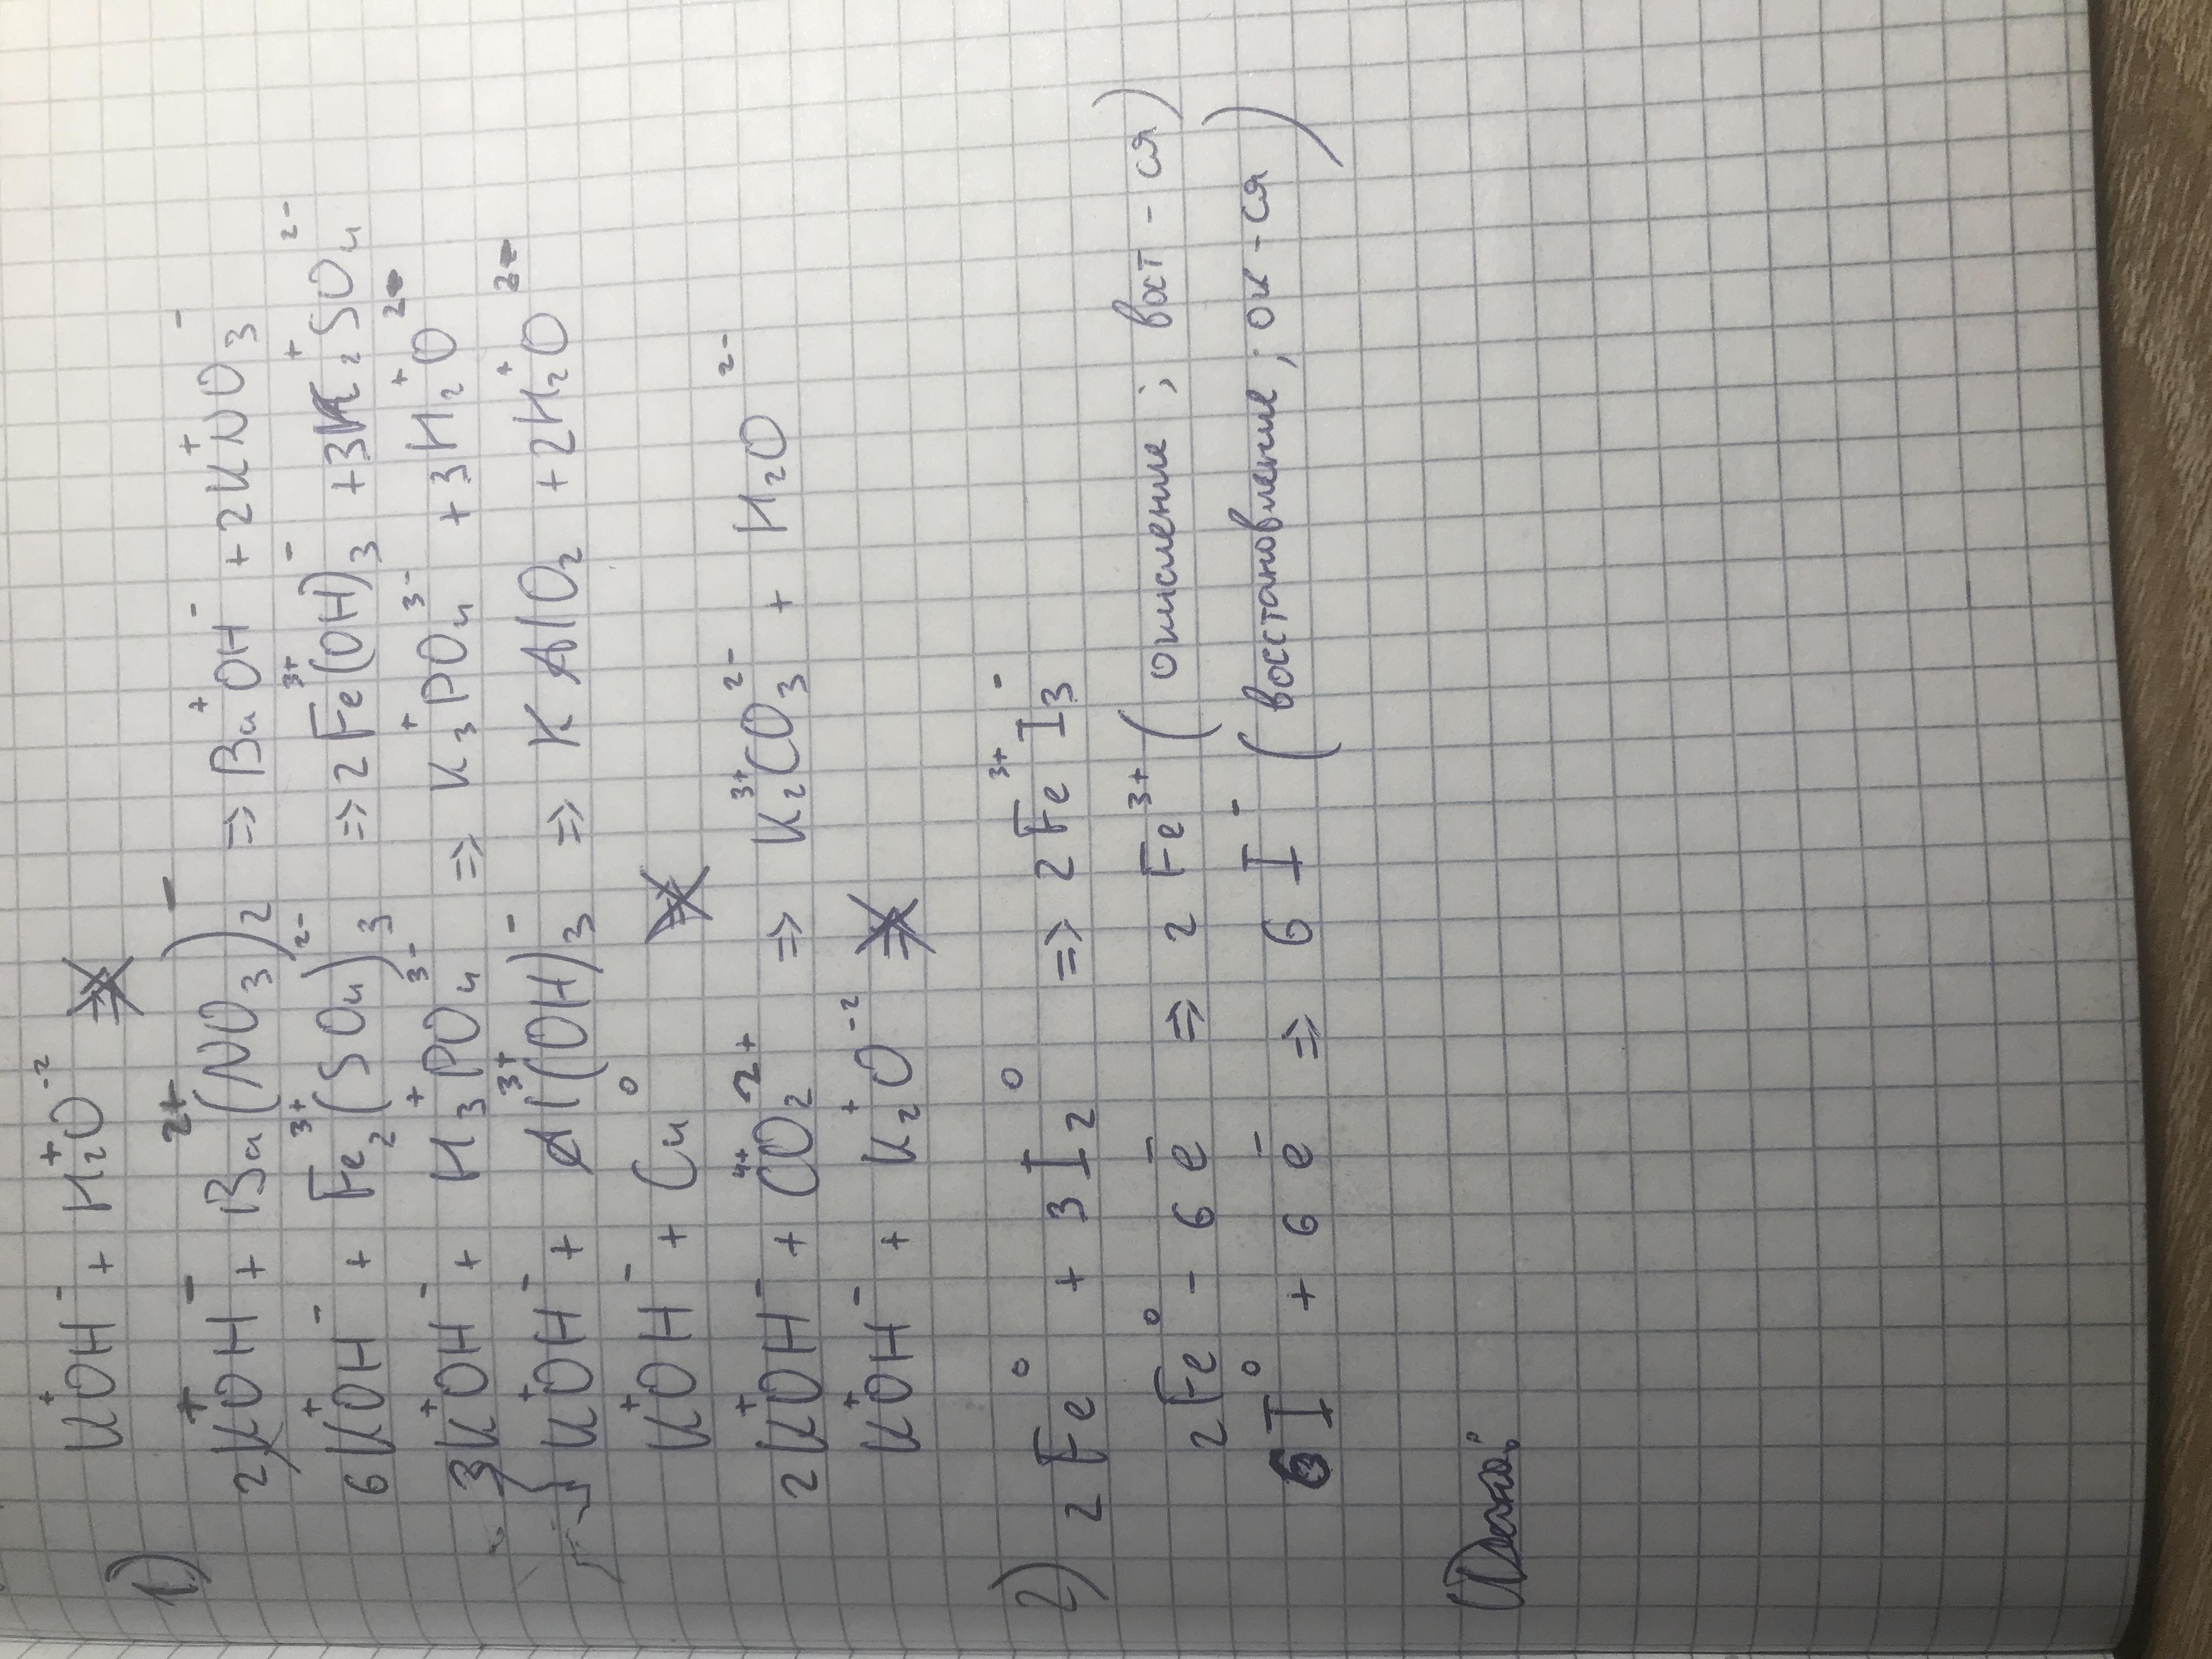 1) K⁺OH⁻ + H₂⁺O⁻² ⇏
2K⁺OH⁻ + Ba²⁺(NO₃)₂⁻ => Ba⁺OH⁻ + 2K⁺NO₃⁻
6K⁺OH⁻ + Fe₂³⁺(SO₄)₃²⁻ => 2Fe³⁺(OH)₃⁻ + 3K₂⁺SO₄²⁻
3K⁺OH⁻ + H₃⁺PO₄³⁻ => K₃⁺PO₄³⁻ + 3H₂⁺O²⁻
K⁺OH⁻ + Al³⁺(OH)₃⁻ => KAlO₂ + 2H₂⁺O²⁻
K⁺OH⁻ + Cu⁰ ⇏
2K⁺OH⁻ + C⁴⁺O₂²⁺ => K₂³⁺CO₃²⁻ + H₂O²⁻
K⁺OH⁻ + K₂⁺O⁻² ⇏
2) 2Fe⁰ + 3I₂⁰ => 2Fe³⁺I₃⁻
2Fe⁰ - 6e⁻ => 2Fe³⁺ (окисление; вост-ся)
6I⁰ + 6e⁻ => 6I⁻ (восстановление; ок-ся)